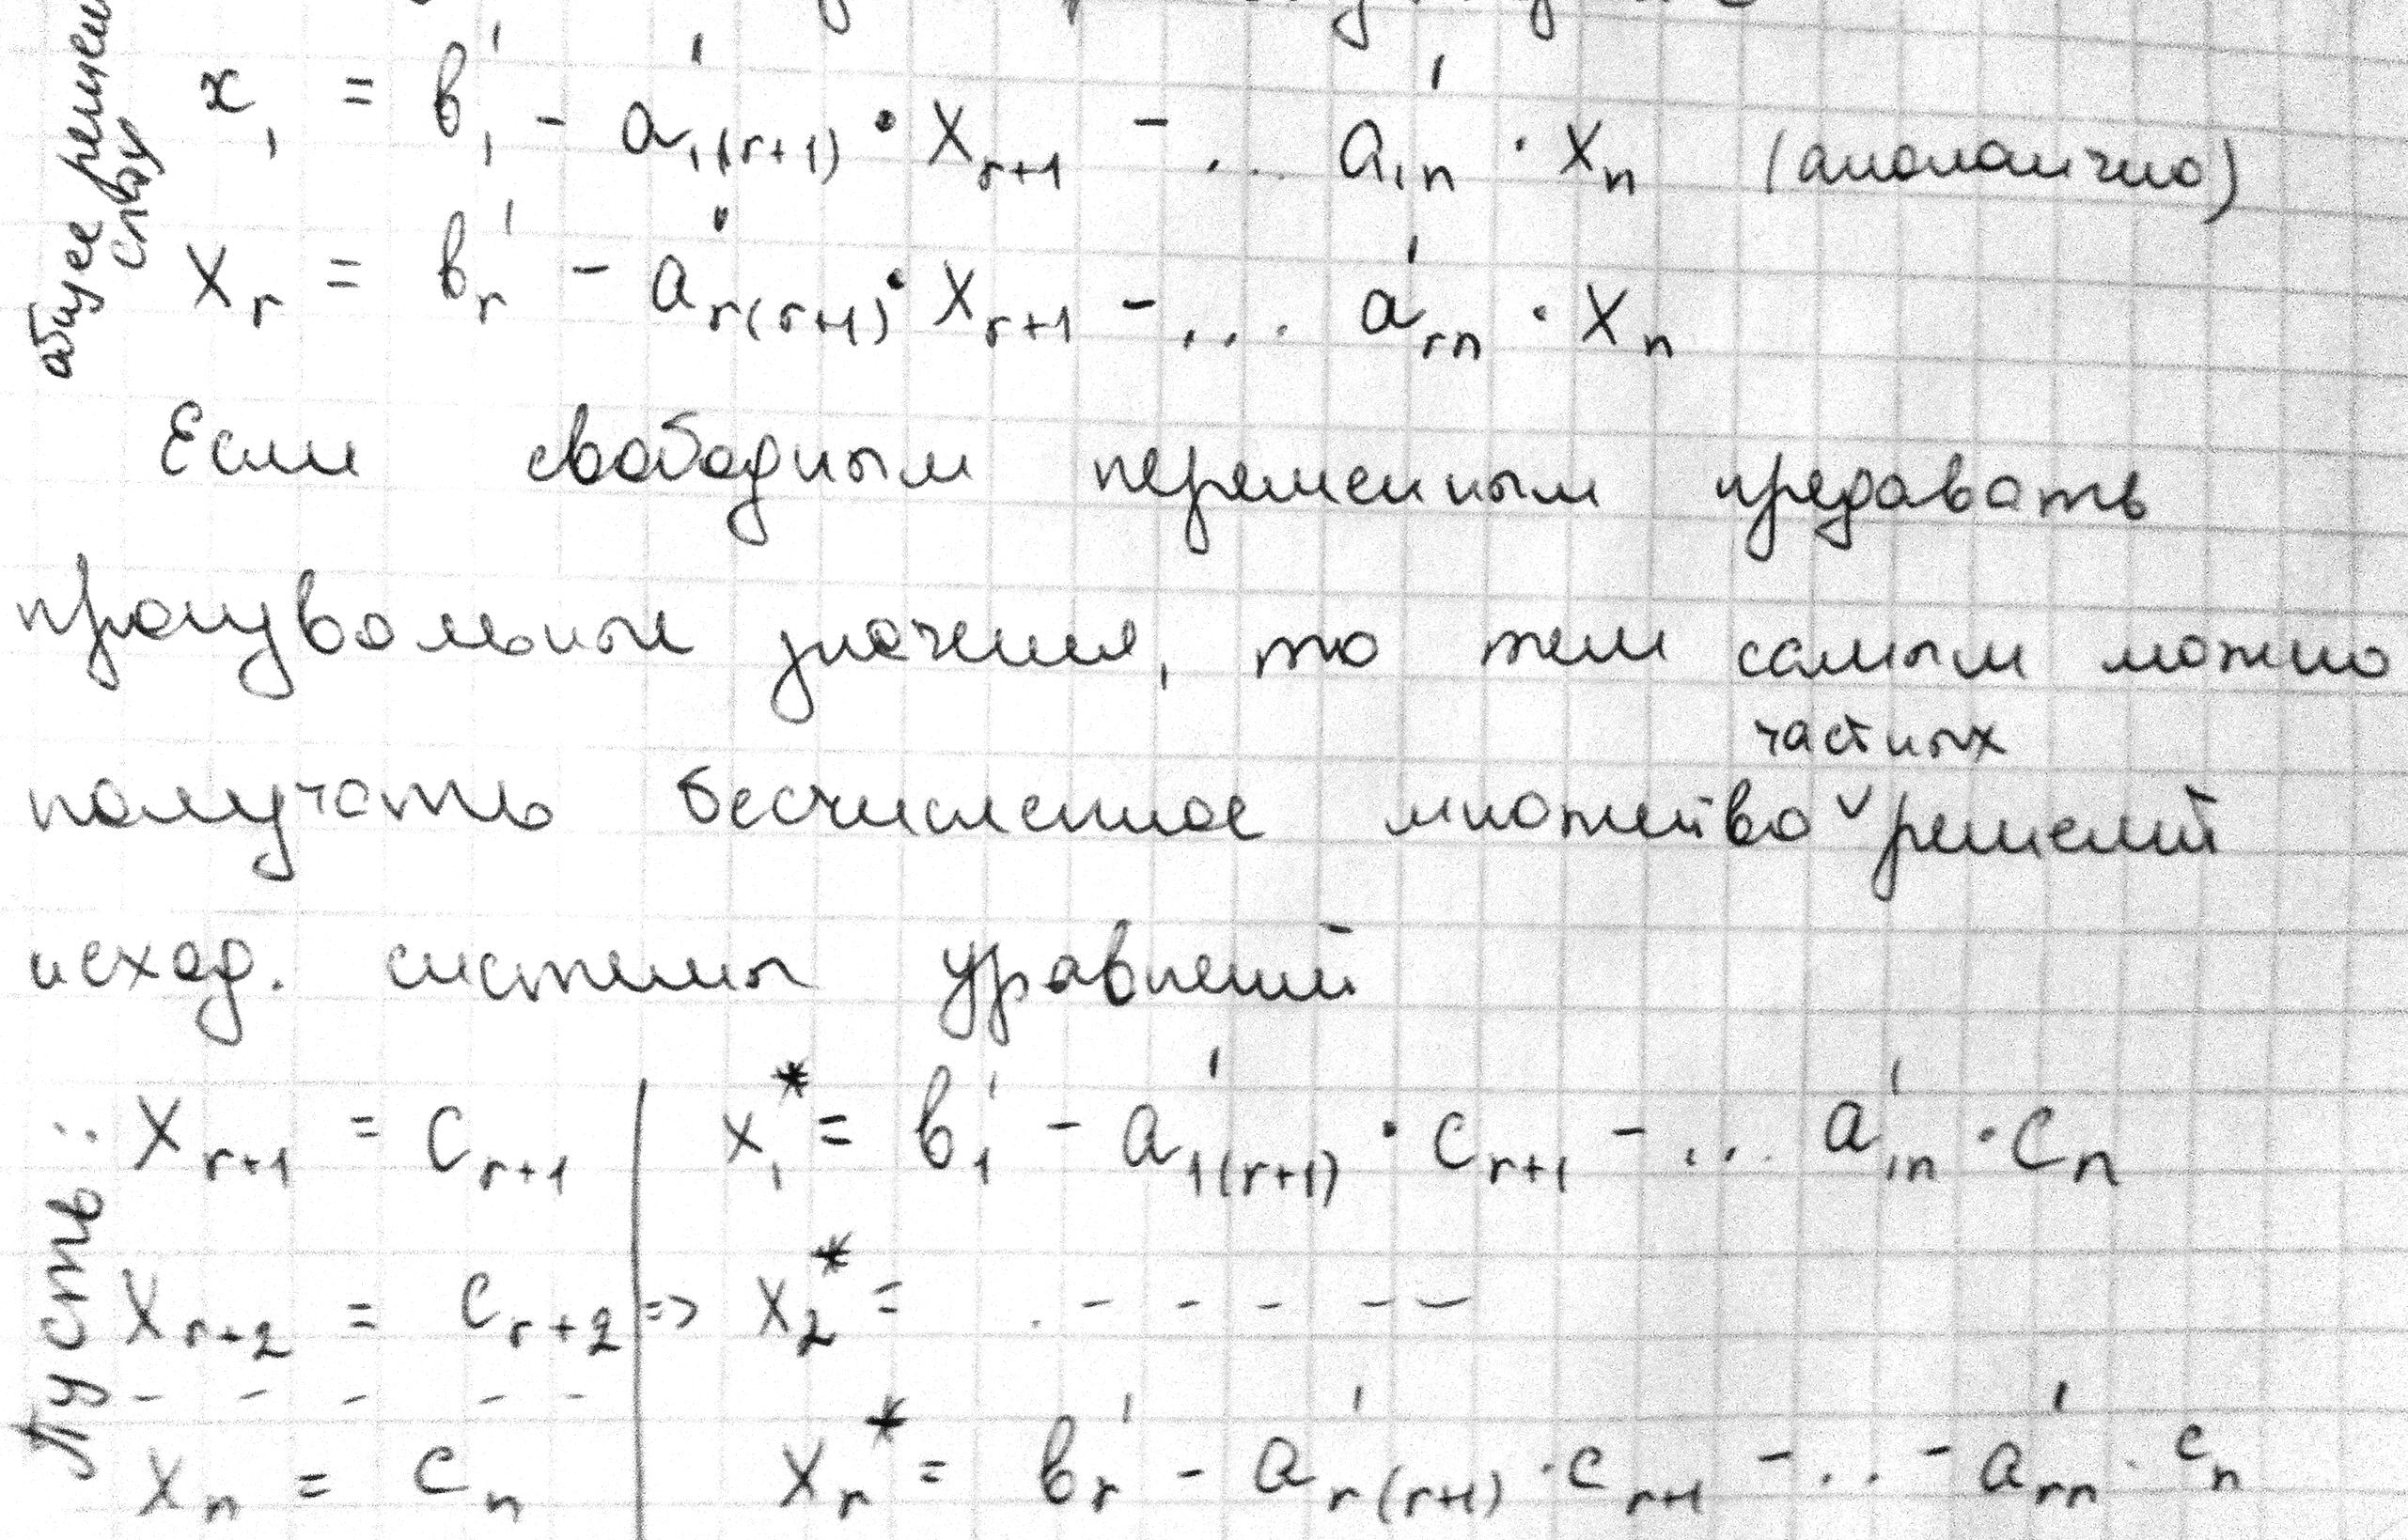 общее решен
слау
x₁ = b₁' - a'₁₍ᵣ₊₁₎ · xᵣ₊₁ - ... a'₁ₙ · xₙ (аналогично)
xᵣ = bᵣ' - a'ᵣ₍ᵣ₊₁₎ · xᵣ₊₁ - ... a'ᵣₙ · xₙ
Если свободным переменным предавать
произвольные значения, то тем самым можно
частных
получать бесчисленное множество ∨ решений
исход. системы уравнений
Пусть:
xᵣ₊₁ = cᵣ₊₁ | x₁* = b₁' - a'₁₍ᵣ₊₁₎ · cᵣ₊₁ - ... a'₁ₙ · cₙ
xᵣ₊₂ = cᵣ₊₂ | => x₂* = . - - - - -
- - - - -
xₙ = cₙ | xᵣ* = bᵣ' - a'ᵣ₍ᵣ₊₁₎ · cᵣ₊₁ - ... - a'ᵣₙ · cₙ